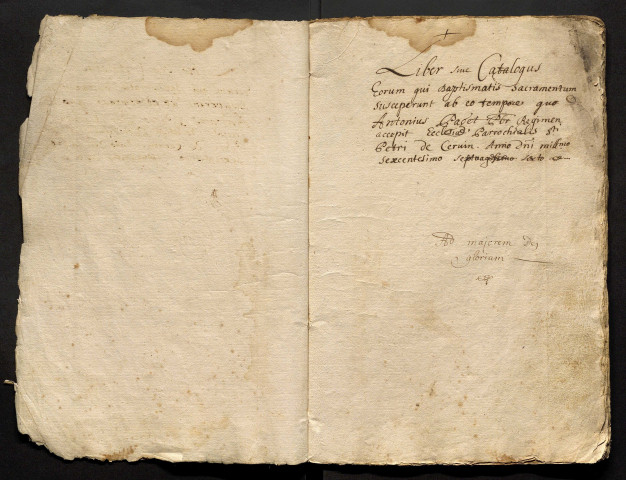 +
Liber sive Catalogus
Eorum qui Baptismatis Sacramentum
susceperunt ab eo tempore quo D
Antonius Paget Pbr Regimen
accepit Ecclesiae Parrochialis Sti
Petri de Cervin. Anno Dni millimo
sexcentesimo septuagesimo sexto
Ad majorem Dei
gloriam